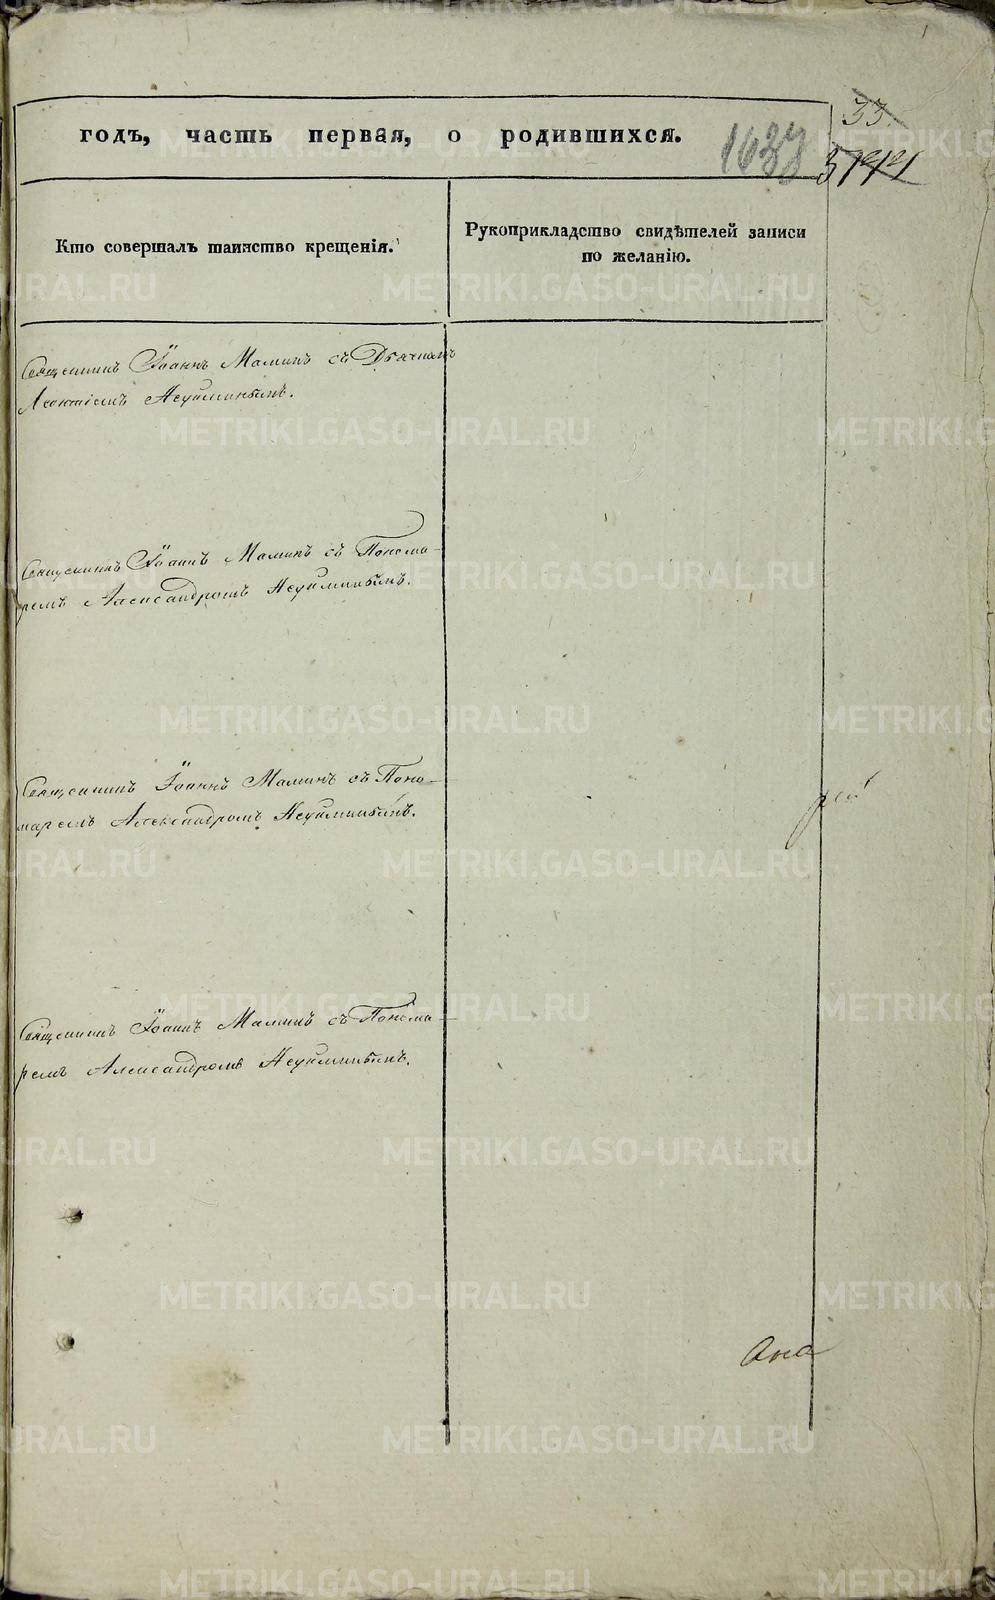 годъ, часть первая, о родившихся.
33
Кто совершалъ таинство крещенія.
Рукоприкладство свидѣтелей записи
по желанію.
Священникъ Іоаннъ Маминъ съ Дьячкомъ
Неуйминымъ.
Священникъ Іоаннъ Маминъ съ Понома-
ремъ Александромъ Неуйминымъ.
Священникъ Іоаннъ Маминъ съ Поно-
маремъ Александромъ Неуйминымъ.
Священникъ Іоаннъ Маминъ съ Понома-
ремъ Александромъ Неуйминымъ.
METRIKI.GASO-URAL.RU